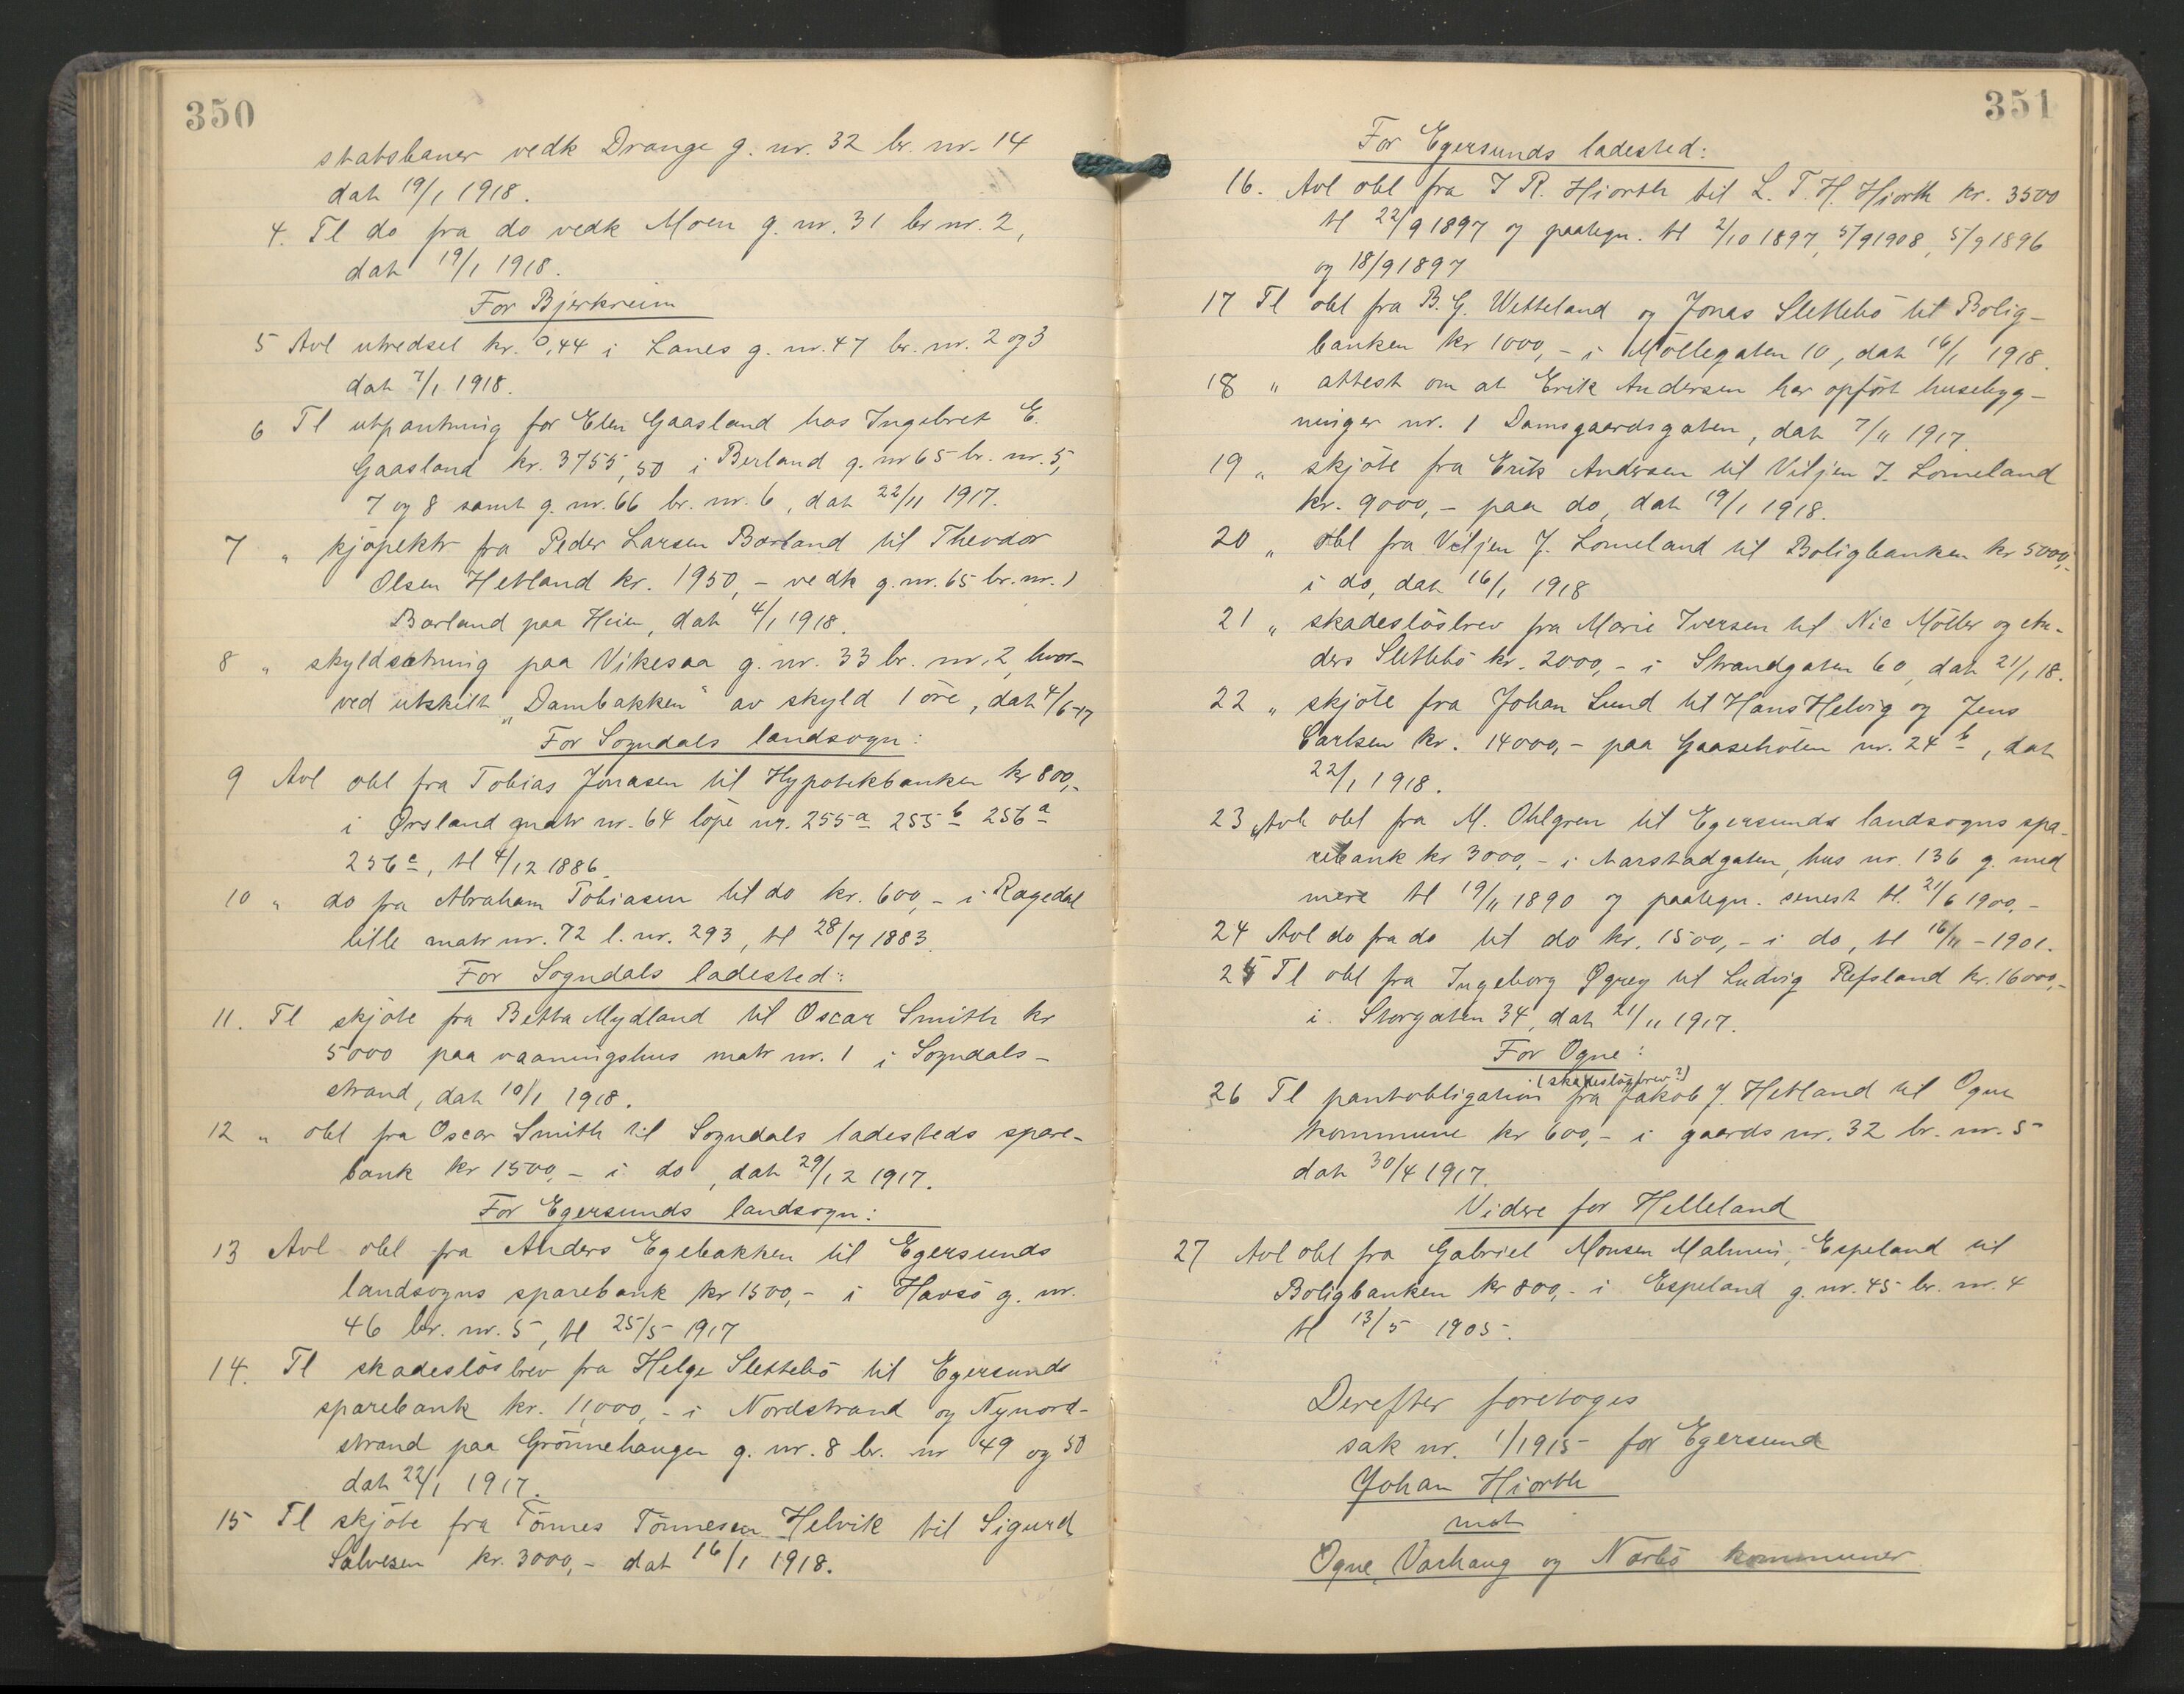 350
statsbaner vedk Drange g. nr. 32 br. nr. 14
dat 19/1 1918.
4. Tl do fra do vedk Moen g. nr. 31 br nr. 2,
dat 19/1 1918.
For Bjerkreim
5 Avl utredsel kr. 0,44 i Lanes g. nr. 47 br. nr. 2 og 3
dat 7/1 1918.
6 Tl utpantning for Elen Gaasland hos Ingebret E.
Gaasland kr. 3755,50 i Berland g. nr 65 br. nr. 5,
7 og 8 samt g. nr. 66 br. nr. 6, dat 22/11 1917.
7 " kjöpektr fra Peder Larsen Borland til Theodor
Olsen Hetland kr. 1950,- vedk g. nr. 65 br. nr. 1
Borland paa Heien, dat 4/1 1918.
8 " skyldsætning paa Vikesaa g. nr. 33 br. nr. 2, hvor-
ved utskilt „Dambakken" av skyld 1 öre, dat 4/6-17
For Sogndals landsogn:
9 Avl obl fra Tobias Jonasen til Hypotekbanken kr 800,-
i Ørsland matr nr. 64 löpe nr. 255a 255b 256a
256c, tl 4/12 1886.
10 " do fra Abraham Tobiasen til do kr. 600,- i Rægedal
lille matr nr. 72 l. nr. 293, tl 28/7 1883.
For Sogndals ladested:
11. Tl skjöte fra Betta Mydland til Oscar Smith kr
5000 paa vaaningshus matr nr. 1 i Sogndals-
strand, dat 10/1 1918.
12 " obl fra Oscar Smith til Sogndals ladesteds spare-
bank kr 1500,- i do, dat 29/12 1917.
For Egersunds landsogn:
13 Avl obl fra Anders Egebakken til Egersunds
landsogns sparebank kr 1500,- i Havsö g. nr.
46 br. nr. 5, tl 25/5 1917
14. Tl skadeslösbrev fra Helge Slettebö til Egersunds
sparebank kr. 11,000,- i Nordstrand og Nynord-
strand paa Grönnehaugen g. nr. 8 br. nr 49 og 50
dat 22/1 1917.
15 Tl skjöte fra Tönnes Tönnesen Helvik til Sigurd
Salvesen kr. 3000,- dat 16/1 1918.
351
For Egersunds ladested:
16. Avl obl fra J R. Hiorth til L. T. H. Hiorth kr. 3500
tl 22/9 1897 og paategn. tl 2/10 1897, 5/9 1908, 5/9 1896
og 18/9 1897
17 Tl obl fra B. G. Wetteland og Jonas Slettebö til Bolig-
banken kr 1000,- i Möllegaten 10, dat 16/1 1918.
18 " attest om at Erik Andersen har opfört husebyg-
ninger nr. 1 Damsgaardsgaten, dat 7/11 1917.
19 " skjöte fra Erik Andersen til Viljen J. Lomeland
kr. 9000,- paa do, dat 19/1 1918.
20 " obl fra Viljen J. Lomeland til Boligbanken kr 5000,-
i do, dat 16/1 1918
21 " skadeslösbrev fra Marie Iversen til Nic Möller og
ders Slettebö kr. 2000,- i Strandgaten 60, dat 21/1 18.
22 " skjöte fra Johan Lund til Hans Helvig og Jens
Carlsen kr. 14000,- paa Gaaseholen nr. 24b, dat
22/1 1918.
23 Avl obl fra M. Ohlgren til Egersunds landsogns spa-
rebank kr 3000,- i Aarstadgaten, hus nr. 136 g. med
mere tl 19/11 1890 og paategn. senest tl. 21/6 1900,-
24 Avl do fra do til do kr. 1500,- i do, tl 16/11-1901.
25 Tl obl fra Ingeborg Øgrey til Ludvig Refsland kr. 16000,-
i. Storgaten 34, dat 21/11 1917.
For Ogne:
(skadeslösbrev?)
26 Tl pantobligation fra Jakob J. Hetland til Ogne
kommune kr 600,- i gaards nr. 32 br. nr. 5
dat 30/4 1917.
Videre for Helleland
27 Avl obl fra Gabriel Monsen Malmin, Espeland til
Boligbanken kr 800,- i Espeland g. nr. 45 br. nr. 4
tl 13/5 1905.
Derefter foretoges
sak nr. 1/1915 for Egersund
Johan Hiorth
mot
Ogne, Varhaug og Nærbö kommuner